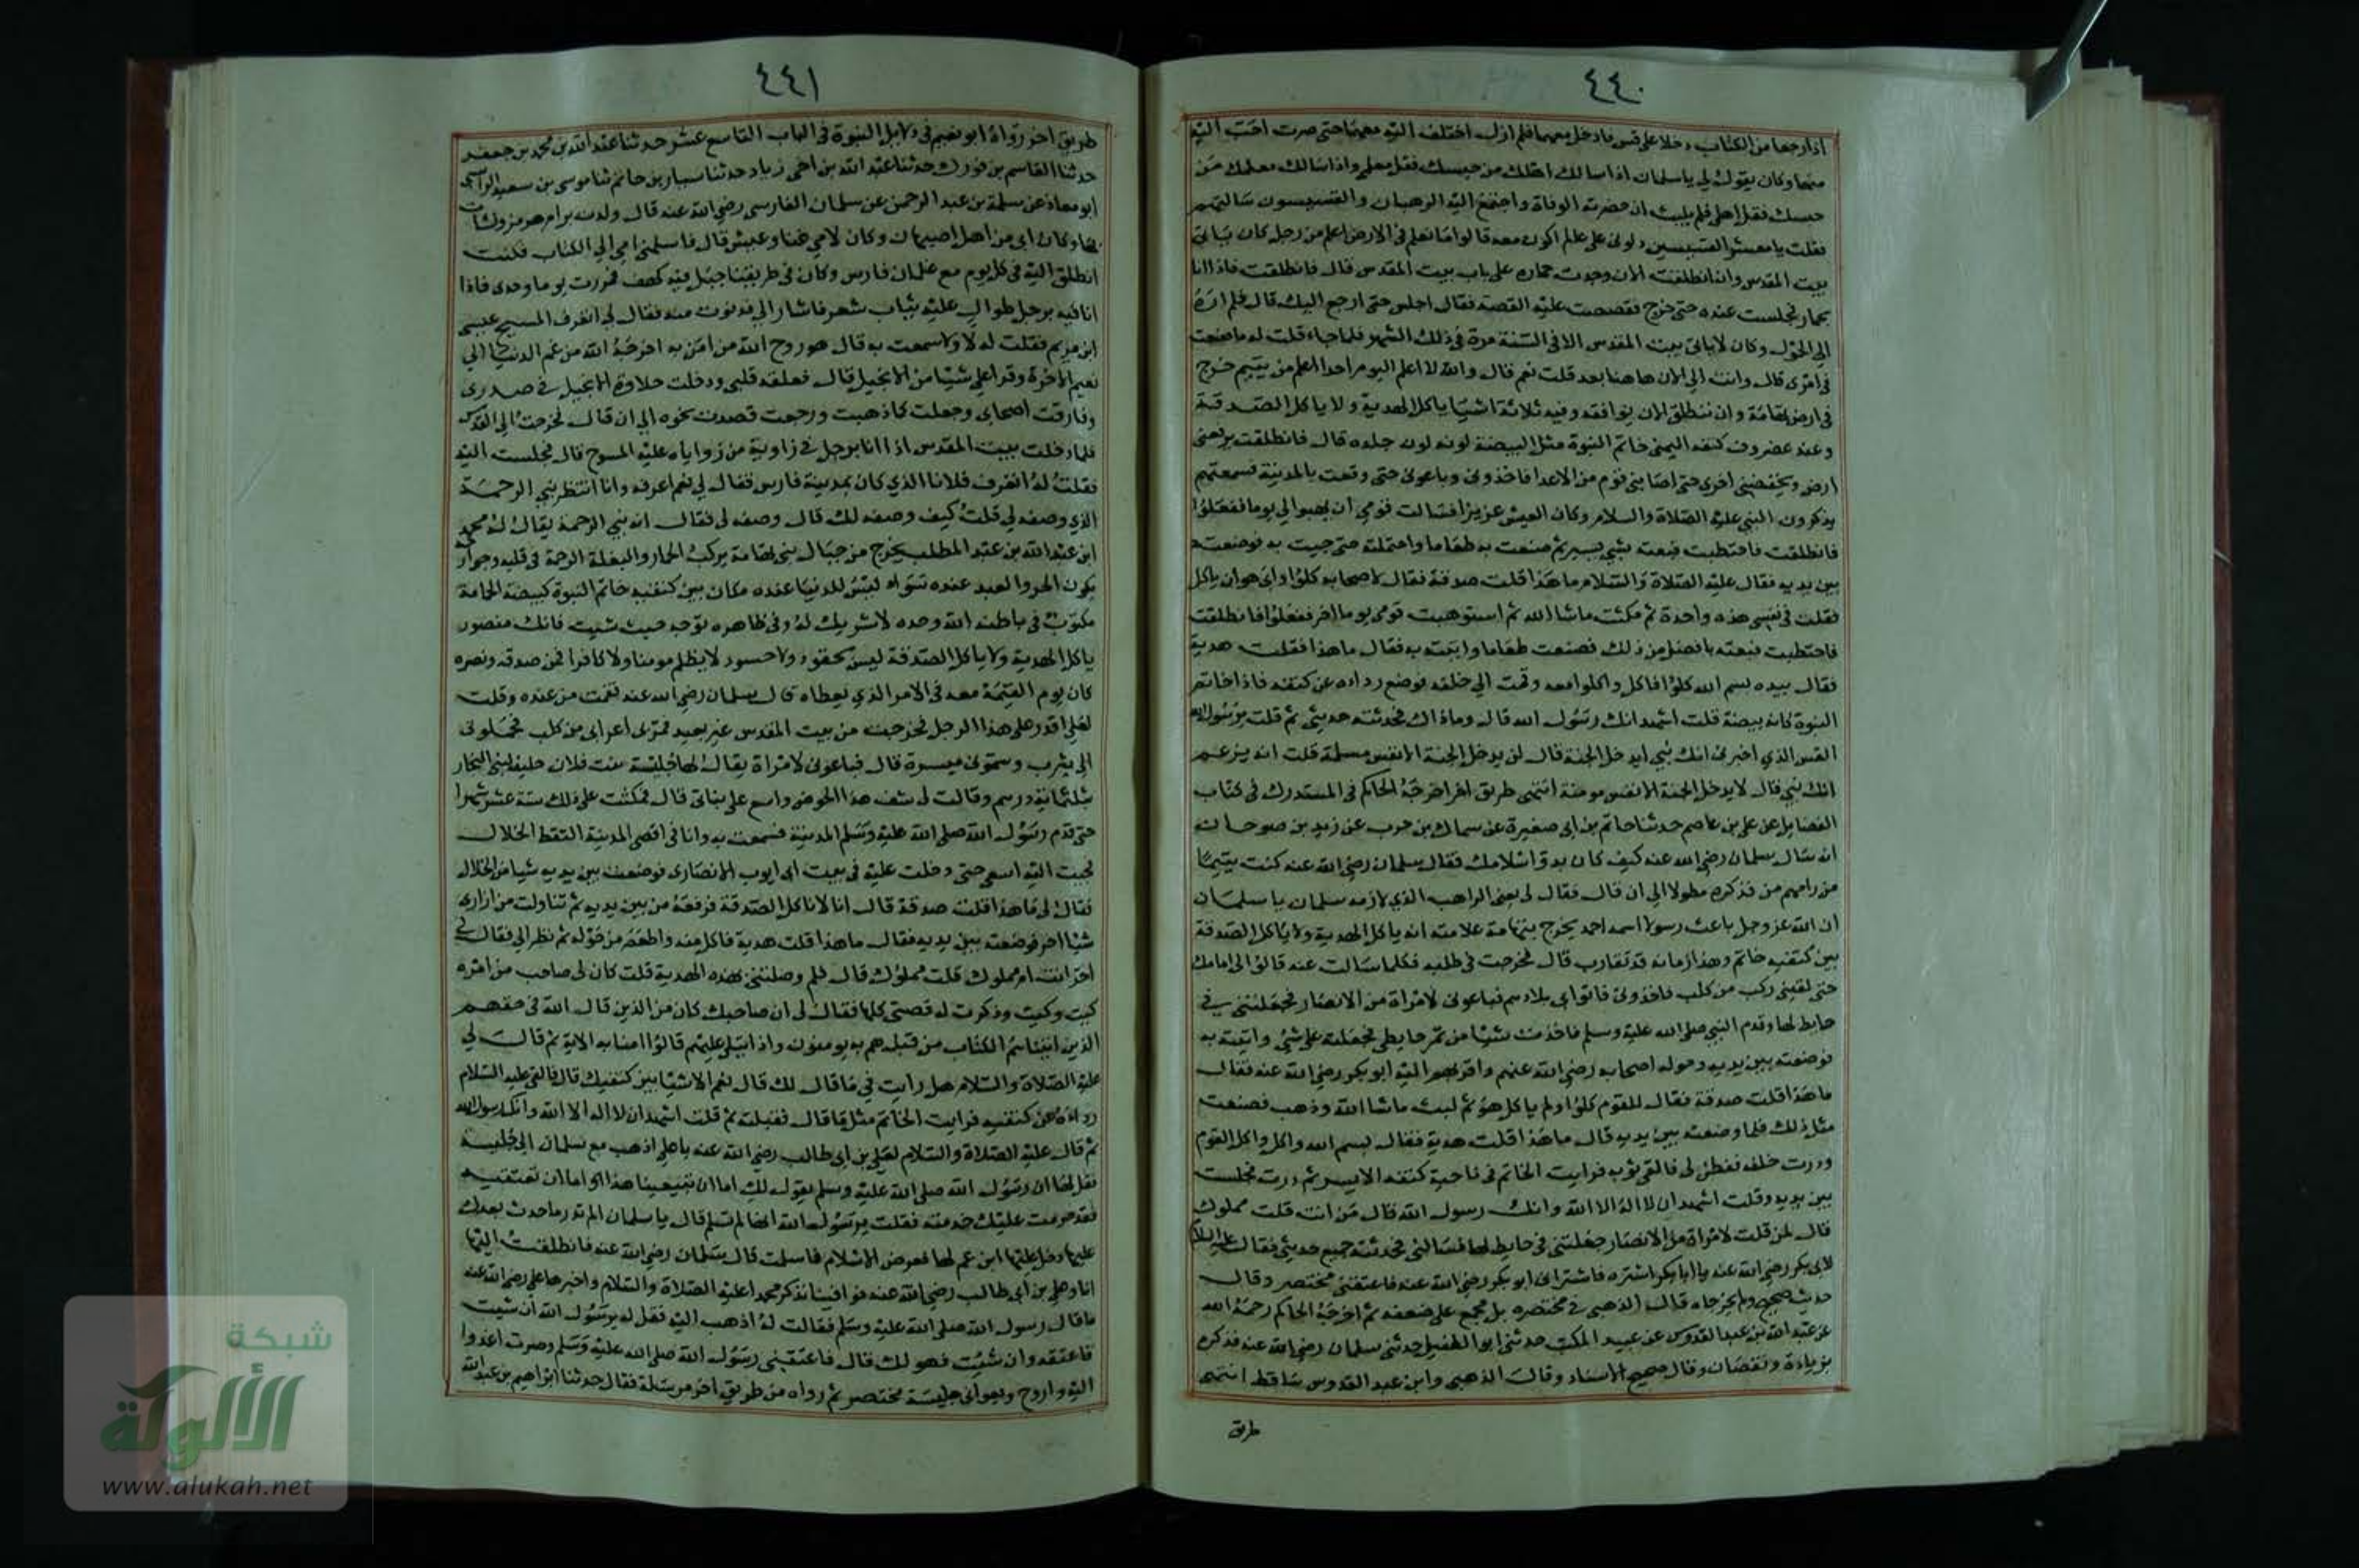 ٤٤٠
اذا رجعا من الكتاب دخلا على قس فادخل معهما فلم ازل اختلف اليه معهما حتى صرت احب اليه
منهما وكان يقول لي يا سلمان اذا سالك اهلك من حبسك فقل معلمي واذا سالك معلمك من
حبسك فقل اهلي فلم يلبث ان حضرته الوفاة واجتمع اليه الرهبان والقسيسون سالتهم
فقلت يا معشر القسيسين دلوني على عالم اكون معه قالوا ما نعلم في الارض اعلم من رجل كان ياتي
بيت المقدس وان انطلقت الان وجدت حماره على باب بيت المقدس قال فانطلقت فاذا انا
بحمار فجلست عنده حتى خرج فقصصت عليه القصة فقال اجلس حتى ارجع اليك قال فلم اره
الى الحول وكان لا ياتي بيت المقدس الا في السنة مرة في ذلك الشهر فلما جاء قلت له ما صنعت
في امري قال وانت الى الان هاهنا بعد قلت نعم قال والله لا اعلم اليوم احدا اعلم من يتيم خرج
في ارض تهامة وان تنطلق الان توافقه وفيه ثلاثة اشيا ياكل الهدية ولا ياكل الصدقة
وعند غضروف كتفه اليمنى خاتم النبوة مثل البيضة لونه لون جلده قال فانطلقت يرفعني
ارض ويخفضني اخرى حتى اصابني قوم من الاعدا فاخذوني وباعوني حتى وقعت بالمدينة فسمعتهم
يذكرون النبي عليه الصلاة والسلام وكان العيش عزيزا فسالت قومي ان يهبوا لي يوما ففعلوا
فانطلقت فاحتطبت فبعته بشي يسير ثم صنعت به طعاما واحتملته حتى جيت به فوضعته
بين يديه فقال عليه الصلاة والسلام ما هذا قلت صدقة فقال لاصحابه كلوا وابى هو ان ياكل
فقلت في نفسي هذه واحدة ثم مكثت ما شا الله ثم استوهبت قومي يوما اخر ففعلوا فانطلقت
فاحتطبت فبعته بافضل من ذلك فصنعت طعاما واتيته به فقال ما هذا فقلت هدية
فقال بيده بسم الله كلوا فاكل واكلوا معه وقمت الى خلفه فوضع رداه عن كتفه فاذا خاتم
النبوة كانه بيضة قلت اشهد انك رسول الله قال وما ذاك فحدثته حديثي ثم قلت يرسول الله
القس الذي اخبرني انك نبي ايدخل الجنة قال لن يدخل الجنة الا نفس مسلمة قلت انه يزعم
انك نبي قال لا يدخل الجنة الا نفس مومنة انتهى طريق اخر اخرجه الحاكم في المستدرك في كتاب
الفضايل عن علي بن عاصم حدثنا حاتم بن ابي صغيرة عن سماك بن حرب عن زيد بن صوحان
انه سال سلمان رضي الله عنه كيف كان بدو اسلامك فقال سلمان رضي الله عنه كنت يتيما
من رامهرمز فذكره مطولا الى ان قال فقال لي يعني الراهب الذي لازمه سلمان يا سلمان
ان الله عز وجل باعث رسولا اسمه احمد يخرج بتهامة علامته انه ياكل الهدية ولا ياكل الصدقة
بين كتفيه خاتم وهذا زمانه قد تقارب قال فخرجت في طلبه فكلما سالت عنه قالوا لي امامك
حتى لقيني ركب من كلب فاخذوني فاتوا بي بلادهم فباعوني لامراة من الانصار فجعلتني في
حايط لها وقدم النبي صلى الله عليه وسلم فاخذت شيا من تمر حايطي فجعلته على شي واتيته به
فوضعته بين يديه وحوله اصحابه رضي الله عنهم واقربهم اليه ابو بكر رضي الله عنه فقال
ما هذا قلت صدقة فقال للقوم كلوا ولم ياكل هو ثم لبثت ما شا الله وذهب فصنعت
مثل ذلك فلما وضعته بين يديه قال ما هذا قلت هدية فقال بسم الله واكل واكل القوم
ودرت خلفه ففطن لي فالقى ثوبه فرايت الخاتم في ناحية كتفه الايسر ثم درت فجلست
بين يديه وقلت اشهد ان لا اله الا الله وانك رسول الله قال من انت قلت مملوك
قال لمن قلت لامراة من الانصار جعلتني في حايط لها فسالني فحدثته جميع حديثي فقال عليه السلام
لابي بكر رضي الله عنه يا ابا بكر اشتره فاشتراني ابو بكر رضي الله عنه فاعتقني مختصر وقال
حديث صحيح ولم يخرجاه قال الذهبي في مختصره بل مجمع على ضعفه ثم اخرجه الحاكم رحمه الله
عن عبد الله بن عبد القدوس عن عبيد المكتب حدثني ابو الطفيل حدثني سلمان رضي الله عنه فذكره
بزيادة ونقصان وقال صحيح الاسناد وقال الذهبي وابن عبد القدوس ساقط انتهى
طريق
٤٤١
طريق اخر رواه ابو نعيم في دلايل النبوة في الباب التاسع عشر حدثنا عبد الله بن محمد بن جعفر
حدثنا القاسم بن فورك حدثنا عبد الله بن اخي زياد حدثنا سيار بن حاتم ثنا موسى بن سعيد الراسبي
ابو معاذ عن سلمة بن عبد الرحمن عن سلمان الفارسي رضي الله عنه قال ولدت برامهرمز ونشات
بها وكان ابي من اهل اصبهان وكان لامي غنا وعيش قال فاسلمتني امي الى الكتاب فكنت
انطلق اليه في كل يوم مع غلمان فارس وكان في طريقنا جبل فيه كهف فمررت يوما وحدي فاذا
انا فيه برجل طوال عليه ثياب شعر فاشار الي فدنوت منه فقال لي اتعرف المسيح عيسى
ابن مريم فقلت له لا ولا سمعت به قال هو روح الله من امن به اخرجه الله من غم الدنيا الى
نعيم الاخرة وقرا علي شيا من الانجيل قال فعلقه قلبي ودخلت حلاوة الانجيل في صدري
وفارقت اصحابي وجعلت كلما ذهبت ورجعت قصدت نحوه الى ان قال فخرجت الى القدس
فلما دخلت بيت المقدس اذا انا برجل في زاوية من زواياه عليه المسوح قال فجلست اليه
فقلت له اتعرف فلانا الذي كان بمدينة فارس فقال لي نعم اعرفه وانا انتظر نبي الرحمة
الذي وصفه لي قلت كيف وصفه لك قال وصفه لي فقال انه نبي الرحمة يقال له محمد
ابن عبد الله بن عبد المطلب يخرج من جبال تهامة يركب الحمار والبغلة الرحمة في قلبه وجوارحه
يكون الحر والعبد عنده سواء ليس للدنيا عنده مكان بين كتفيه خاتم النبوة كبيضة الحمامة
مكتوب في باطنه الله وحده لا شريك له وفي ظاهره توجه حيث شيت فانك منصور
ياكل الهدية ولا ياكل الصدقة ليس بحقود ولا حسود لا يظلم مومنا ولا كافرا فمن صدقه ونصره
كان يوم القيمة معه في الامر الذي يعطاه قال سلمان رضي الله عنه فقمت من عنده وقلت
لعلي اقدر على هذا الرجل فخرجت من بيت المقدس غير بعيد فمر بي اعرابي من كلب فحملوني
الى يثرب وسموني ميسرة قال فباعوني لامراة يقال لها خليسة بنت فلان حليف لبني النجار
بثلثماية درهم وقالت لي سف هذا الخوص واسع على بناتي قال فمكثت على ذلك ستة عشر شهرا
حتى قدم رسول الله صلى الله عليه وسلم المدينة فسمعت به وانا في اقصى المدينة التقط الخلال
فجيت اليه اسعى حتى دخلت عليه في بيت ابي ايوب الانصاري فوضعت بين يديه شيا من الخلال
فقال لي ما هذا قلت صدقة قال انا لا ناكل الصدقة فرفعته من بين يديه ثم تناولت من ازاري
شيا اخر فوضعته بين يديه فقال ما هذا قلت هدية فاكل منه واطعم من حوله ثم نظر الي فقال لي
احر انت ام مملوك قلت مملوك قال فلم وصلتني بهذه الهدية قلت كان لي صاحب من امره
كيت وكيت وذكرت له قصتي كلها فقال لي ان صاحبك كان من الذين قال الله في حقهم
الذين اتيناهم الكتاب من قبله هم به يومنون واذا يتلى عليهم قالوا امنا به الاية ثم قال لي
عليه الصلاة والسلام هل رايت في ما قال لك قال نعم الا شيا بين كتفيك قال فالقى عليه السلام
رداءه عن كتفيه فرايت الخاتم مثل ما قال فقبلته ثم قلت اشهد ان لا اله الا الله وانك رسول الله
ثم قال عليه الصلاة والسلام لعلي بن ابي طالب رضي الله عنه يا علي اذهب مع سلمان الى خليسة
فقل لها ان رسول الله صلى الله عليه وسلم يقول لك اما ان تبيعينا هذا او اما ان تعتقيه
فقد حرمت عليك خدمته فقلت يرسول الله انها لم تسلم قال يا سلمان الم تدر ما حدث بعدك
عليها دخل عليها ابن عم لها فعرض الاسلام فاسلمت قال سلمان رضي الله عنه فانطلقت اليها
انا وعلي بن ابي طالب رضي الله عنه فوافيناها تذكر محمدا عليه الصلاة والسلام واخبرها علي رضي الله عنه
ما قال رسول الله صلى الله عليه وسلم فقالت له اذهب اليه فقل له يرسول الله ان شيت
فاعتقه وان شيت فهو لك قال فاعتقني رسول الله صلى الله عليه وسلم وصرت اغدوا
اليه واروح وتعولني خليسة مختصر ثم رواه من طريق اخر مرسلة فقال حدثنا ابراهيم بن عبد الله
شبكة
الألوكة
www.alukah.net